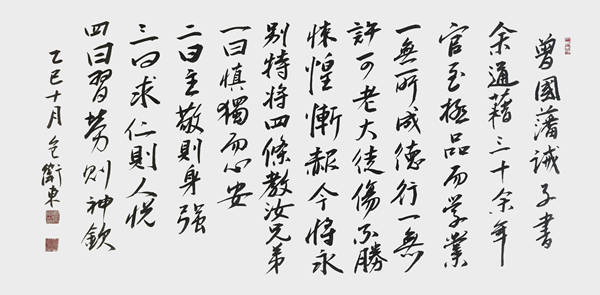 曾國藩誡子書
余通藉三十余年
官至極品而学業
一無所成德行一無
許可老大徒傷不勝
悚惶慚赧今將永
别特將四條教汝兄弟
一曰慎獨而心安
二曰主敬則身强
三曰求仁則人悦
四曰習勞則神欽
乙巳十月 仝衛東